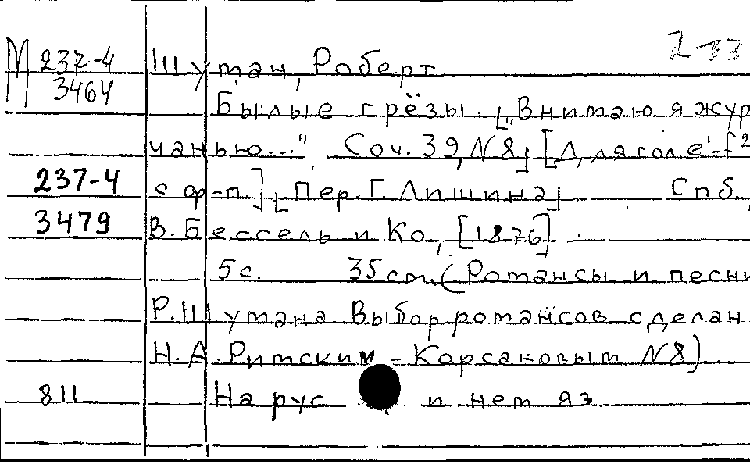 М 237-4 Шуман, Роберт
3464 Былые грёзы. [„Внимаю я жур
чанью..." Соч. 39, №8] [Для голоса
237-4 с ф-п.] [Пер. Г. Лишина] Спб,
3479 В. Бессель и Ко, [1876].
5 с. 35 см. (Романсы и песни
Р. Шумана Выбор романсов сделан
Н.А. Римским-Корсаковым №8)
811 На рус и нем яз